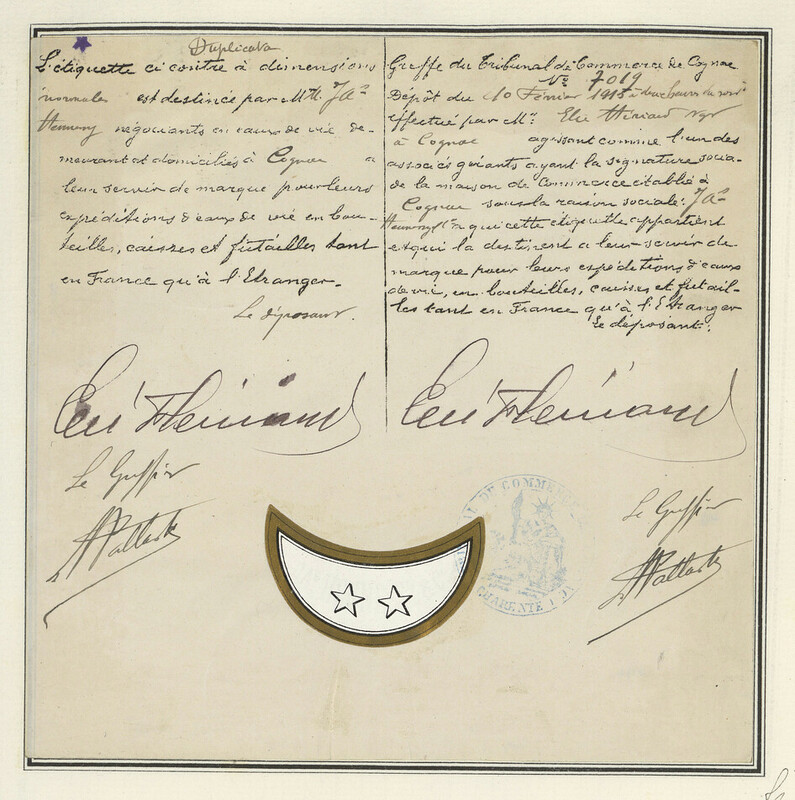 Duplicata
L'étiquette ci contre à dimensions
normales est destinée par MM. Jas
Hennessy négociants en eaux de vie de-
meurant et domiciliés à Cognac a
leur servir de marque pour leurs
expéditions d'eaux de vie en bou-
teilles, caisses et futailles tant
en France qu'à l'Etranger.
Le déposant.
Le Greffier
Greffe du Tribunal de Commerce de Cognac
No 7019
Dépôt du 10 Février 1915 à deux heures du soir
effectué par Mr. Elie
à Cognac agissant comme l'un des
associés gérants ayant la signature socia-
de la maison de Commerce établie à
Cognac sous la raison sociale: Jas
Hennessy & Co a qui cette étiquette appartient
et qui la destinent a leur servir de
marque pour leurs expéditions d'eaux
de vie, en bouteilles, caisses et futail-
les tant en France qu'à l'Etranger
Le déposant:
Le Greffier
DE COMMERCE
CHARENTE